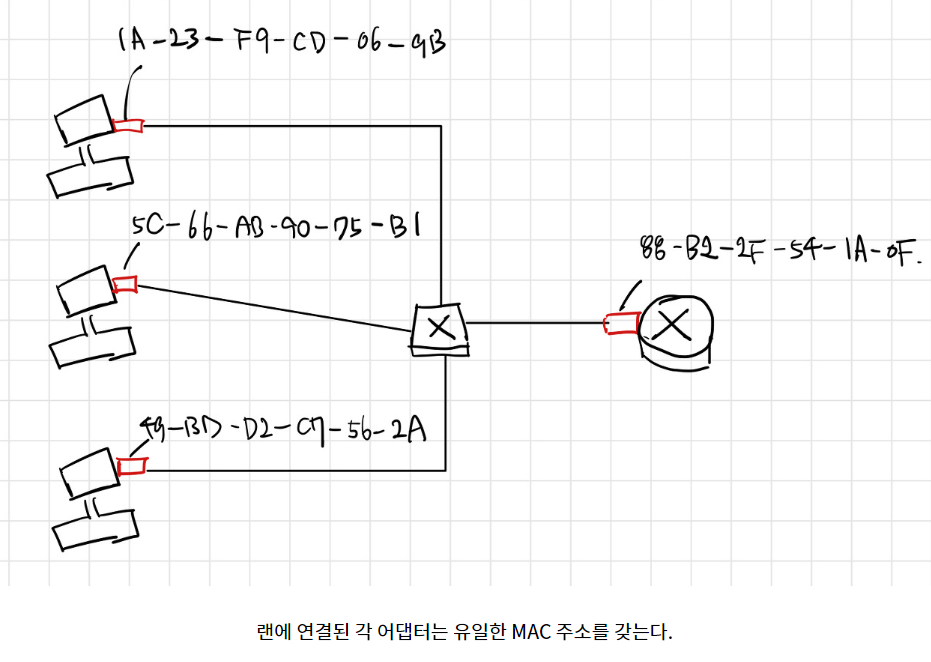 1A-23-F9-CD-06-9B
5C-66-AB-90-75-B1
88-B2-2F-54-1A-0F.
49-BD-D2-C7-56-2A
랜에 연결된 각 어댑터는 유일한 MAC 주소를 갖는다.